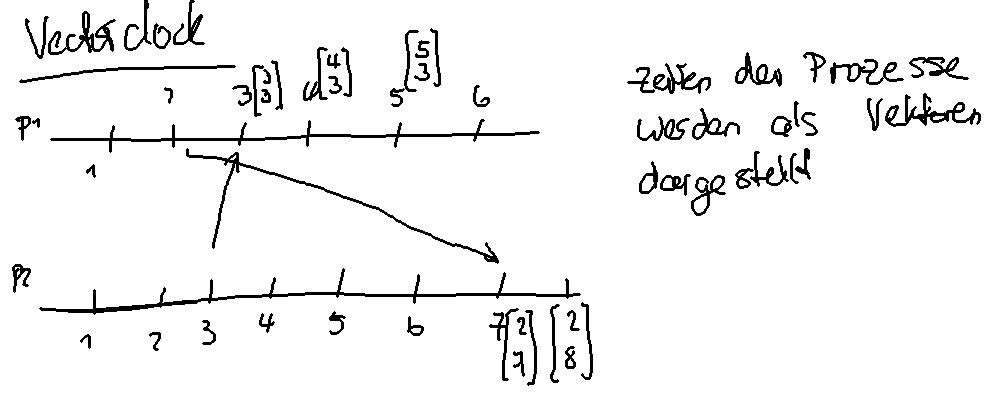 Vectorclock
2 3 [3 3] 4 [4 3] 5 [5 3] 6
P1
1
P2
1 2 3 4 5 6 7 [2 7] [2 8]
Zeiten der Prozesse
werden als Vektoren
dargestellt